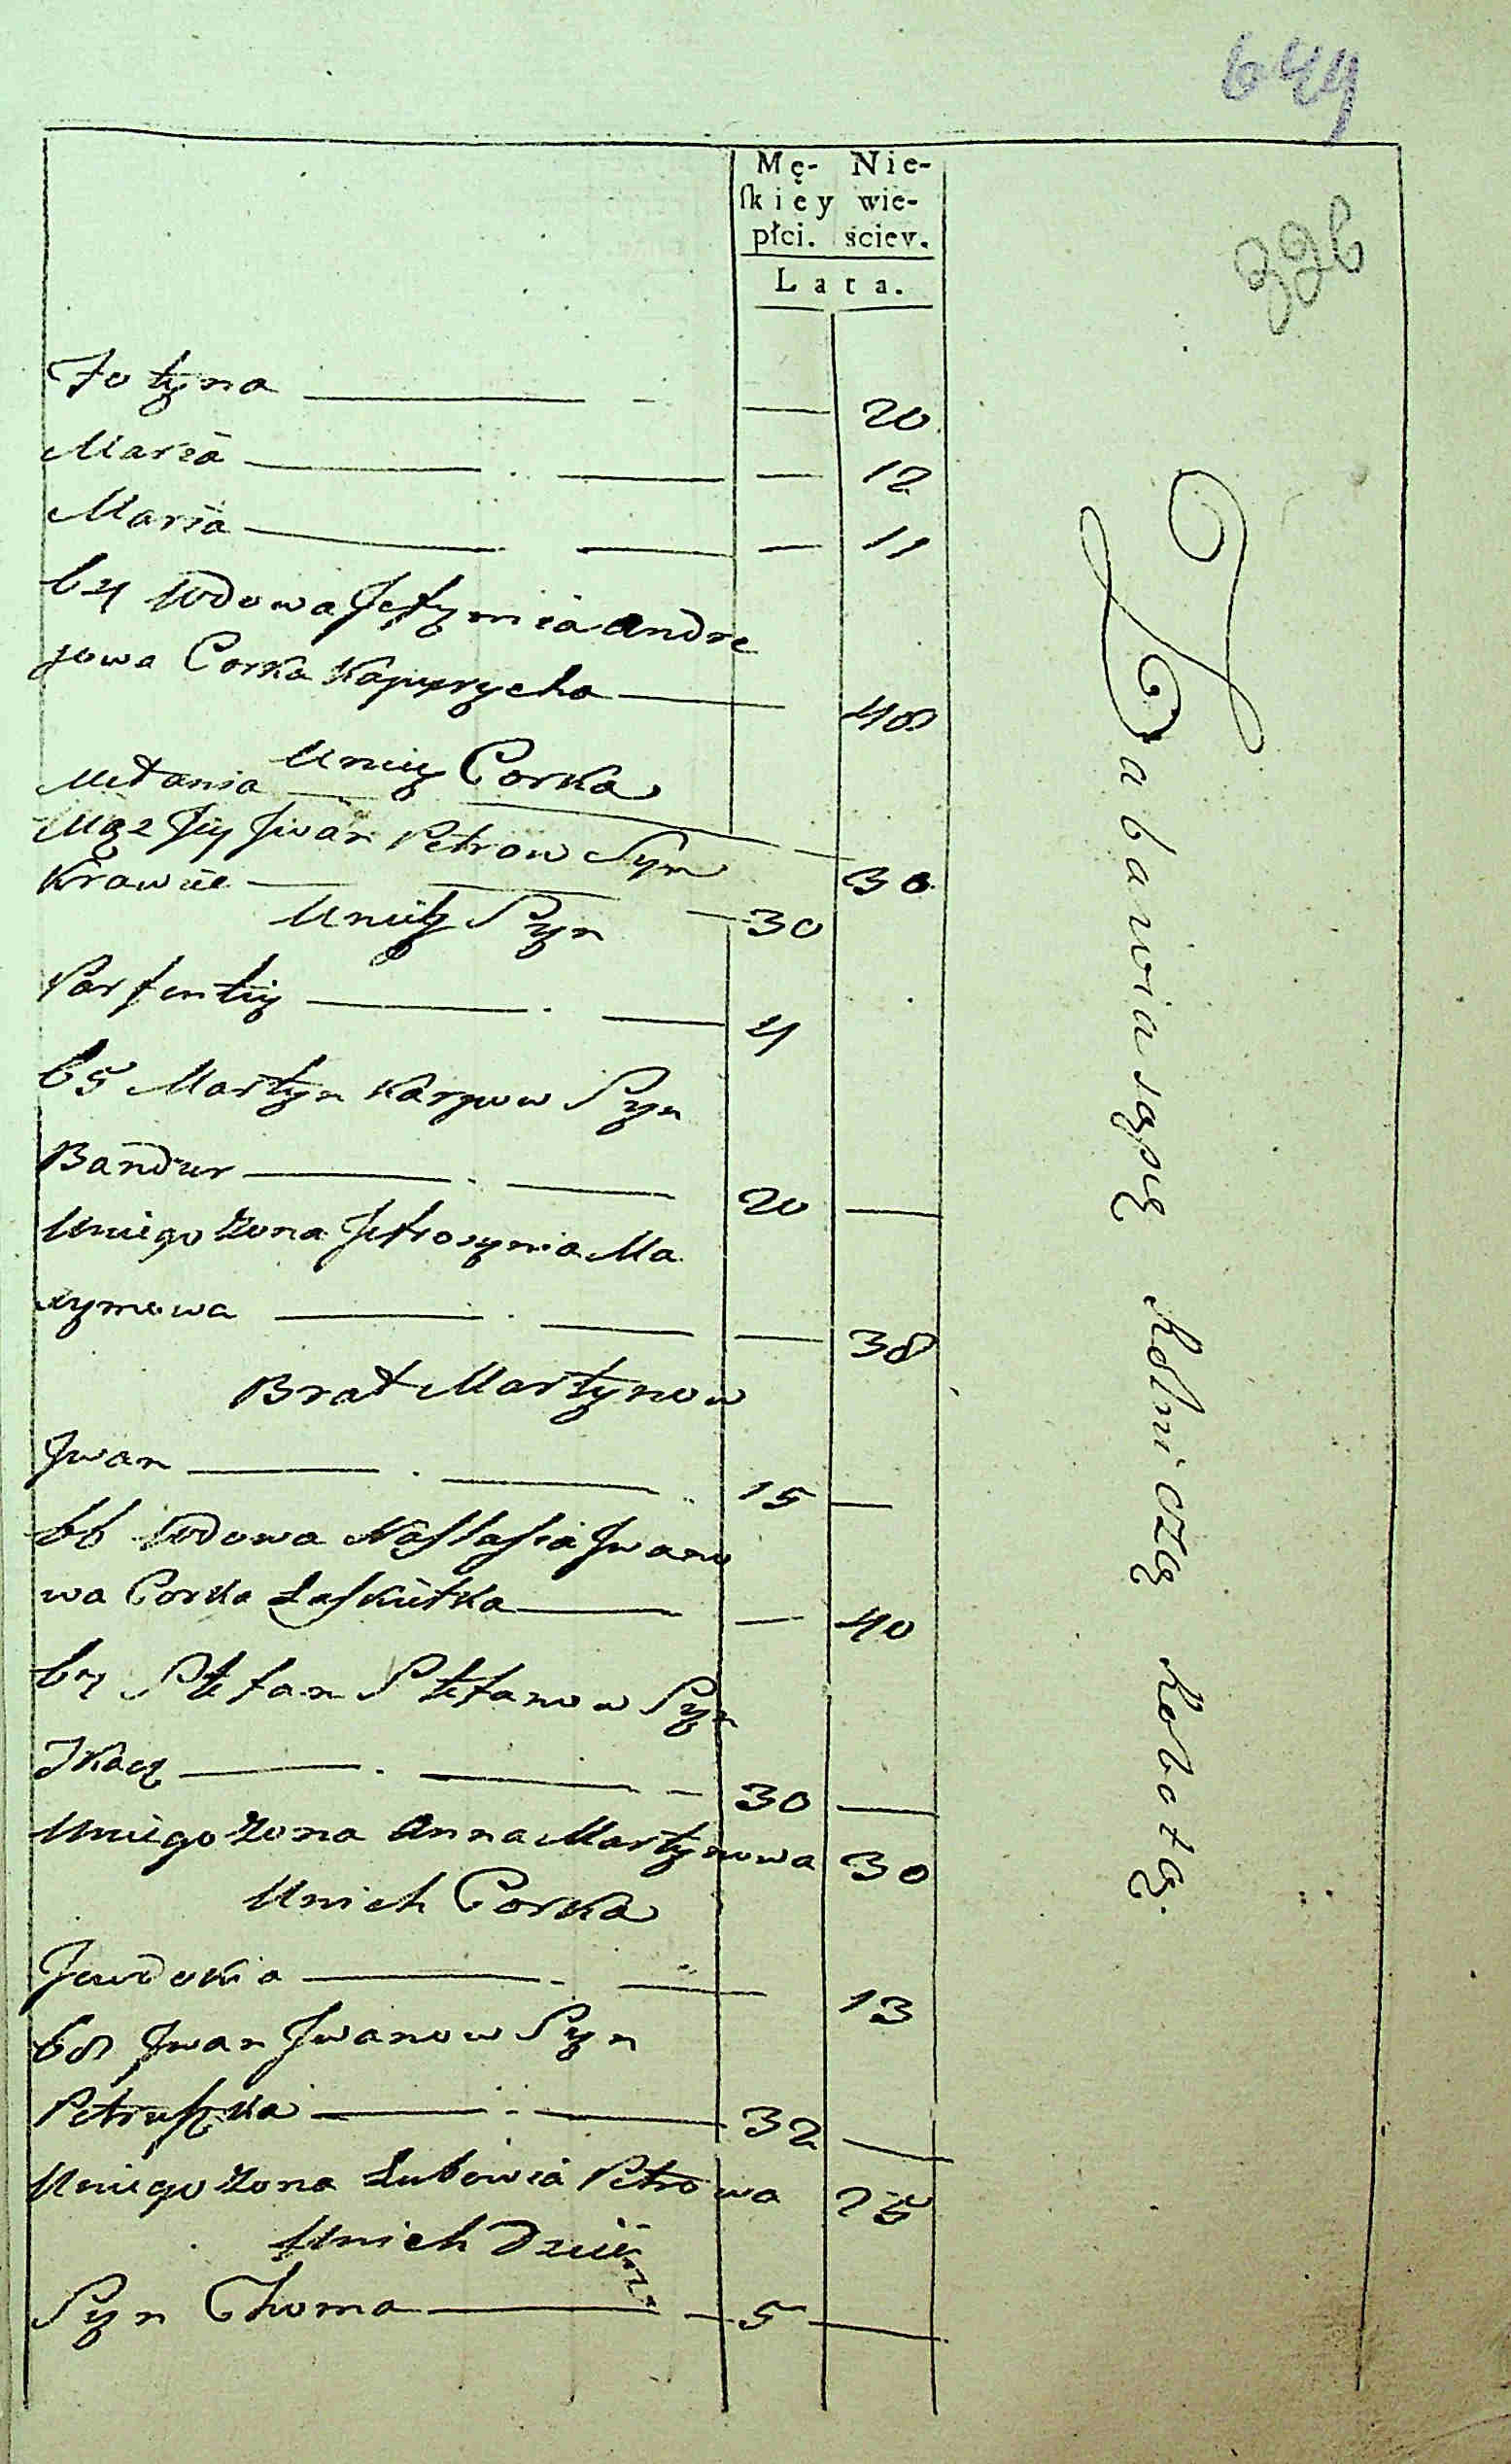 644
326
Mę- Nie-
ſkiey wie-
płci. ściey.
Lata.
Fotyna — — 20
Maria — — 12
Maria — — 11
64 Wdowa Jefymia Andre
jowa Corka Kapurzycha — 48
Uniey Corka
Melania — 30
Mąz Jey Jwan Petrow Syn
Krawiec — 30
Uniey Syn
Parfentiy — 4
65 Martyn Karpow Syn
Bandur — 20 —
Uniego Zona Jefrosynia Ma
xymowa — — 38
Brat Martynow
Jwan — 15 —
66 Wdowa Nastasia Jwano
wa Corka Łoskutka — — 40
67 Stefan Stefanow Syn
Tkacz — 30 —
Uniego Zona Anna Martynowa 30
Unich Corka
Jewdokia — 13
68 Jwan Jwanow Syn
Petruszka — 32 —
Uniego Zona Lubowia Petrowa 25
Unich Dzieci
Syn Choma — 5 —
Zabawia się Rolniczą Robotą.